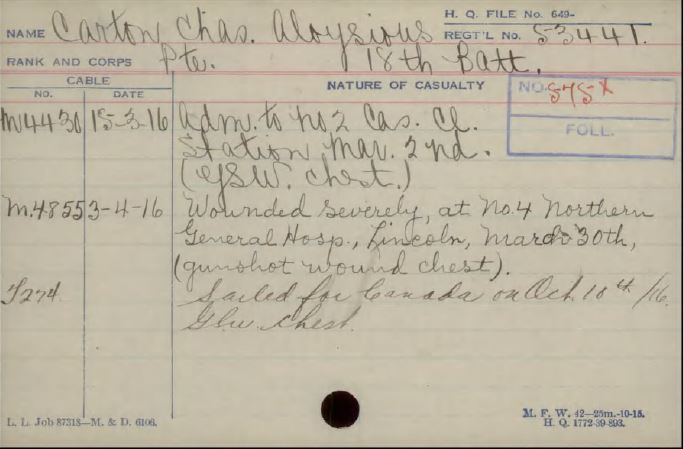 H. Q. FILE No. 649-
NAME Carton, Chas. Aloysious REGT'L No. 53441.
RANK AND CORPS Pte. 18th Batt.
CABLE
NO. DATE NATURE OF CASUALTY
NO. 575 X
FOLL.
M4430 15-3-16 Adm. to No 2 Cas. Cl.
Station Mar. 2nd.
(GSW. chest.)
M.4855 3-4-16 Wounded severely, at No. 4 Northern
General Hosp., Lincoln, March 30th,
(gunshot wound chest).
T274. Sailed for Canada on Oct. 10th /16.
GSW chest.
L. L. Job 87318—M. & D. 6106.
M. F. W. 42—25m.-10-15.
H. Q. 1772-39-893.